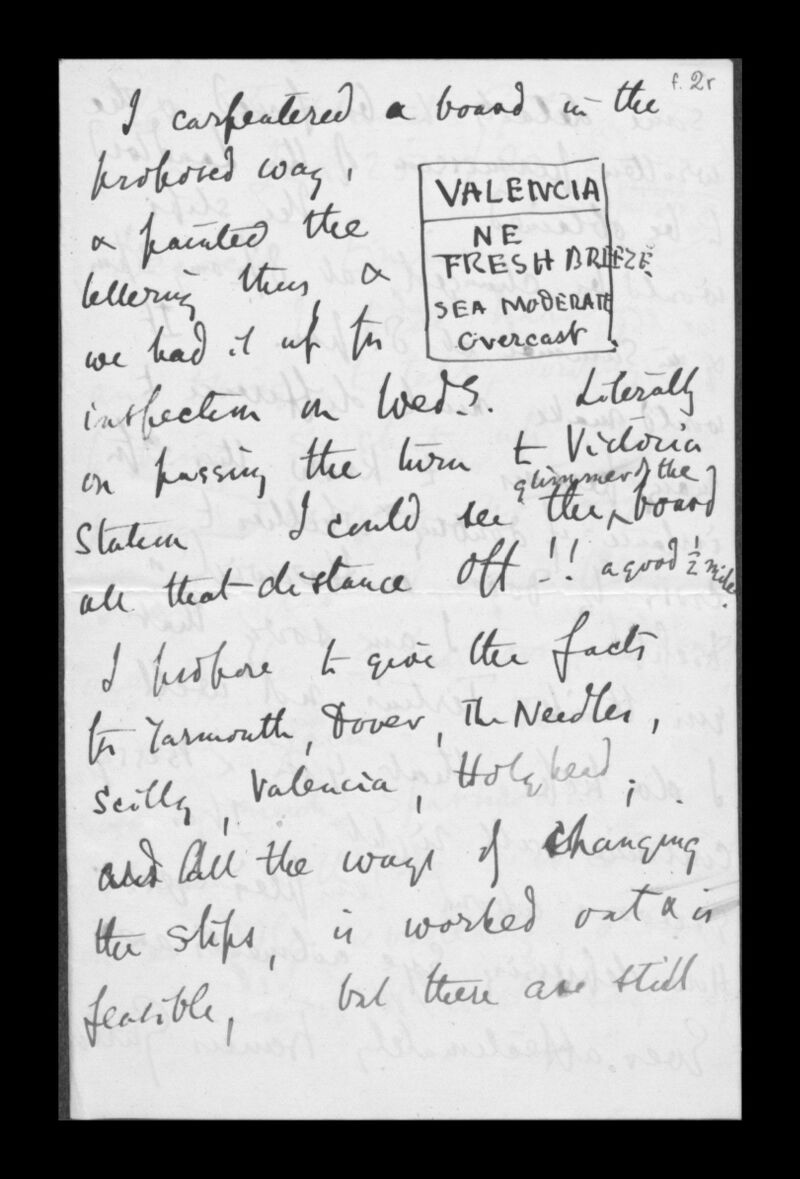 f. 2r
I carpentered a board in the
proposed way,
& painted the
lettering thus &
we had it up for
VALENCIA
NE
FRESH BREEZE
SEA MODERATE
Overcast.
inspection on Weds. Literally
on passing the turn to Victoria
glimmer of the
Station I could see the ^ board
all that distance off!! a good ½ mile.
I propose to give the facts
for Yarmouth, Dover, The Needles,
Scilly, Valencia, Holyhead;
and all the ways of changing
the slips, is worked out & is
feasible, but there are still